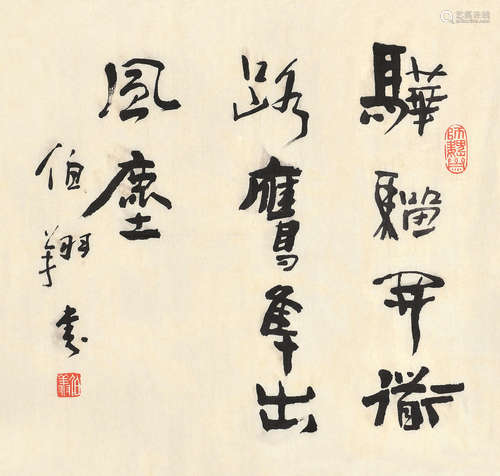 驊騮開衜
路鷹隼出
風塵
伯翔書